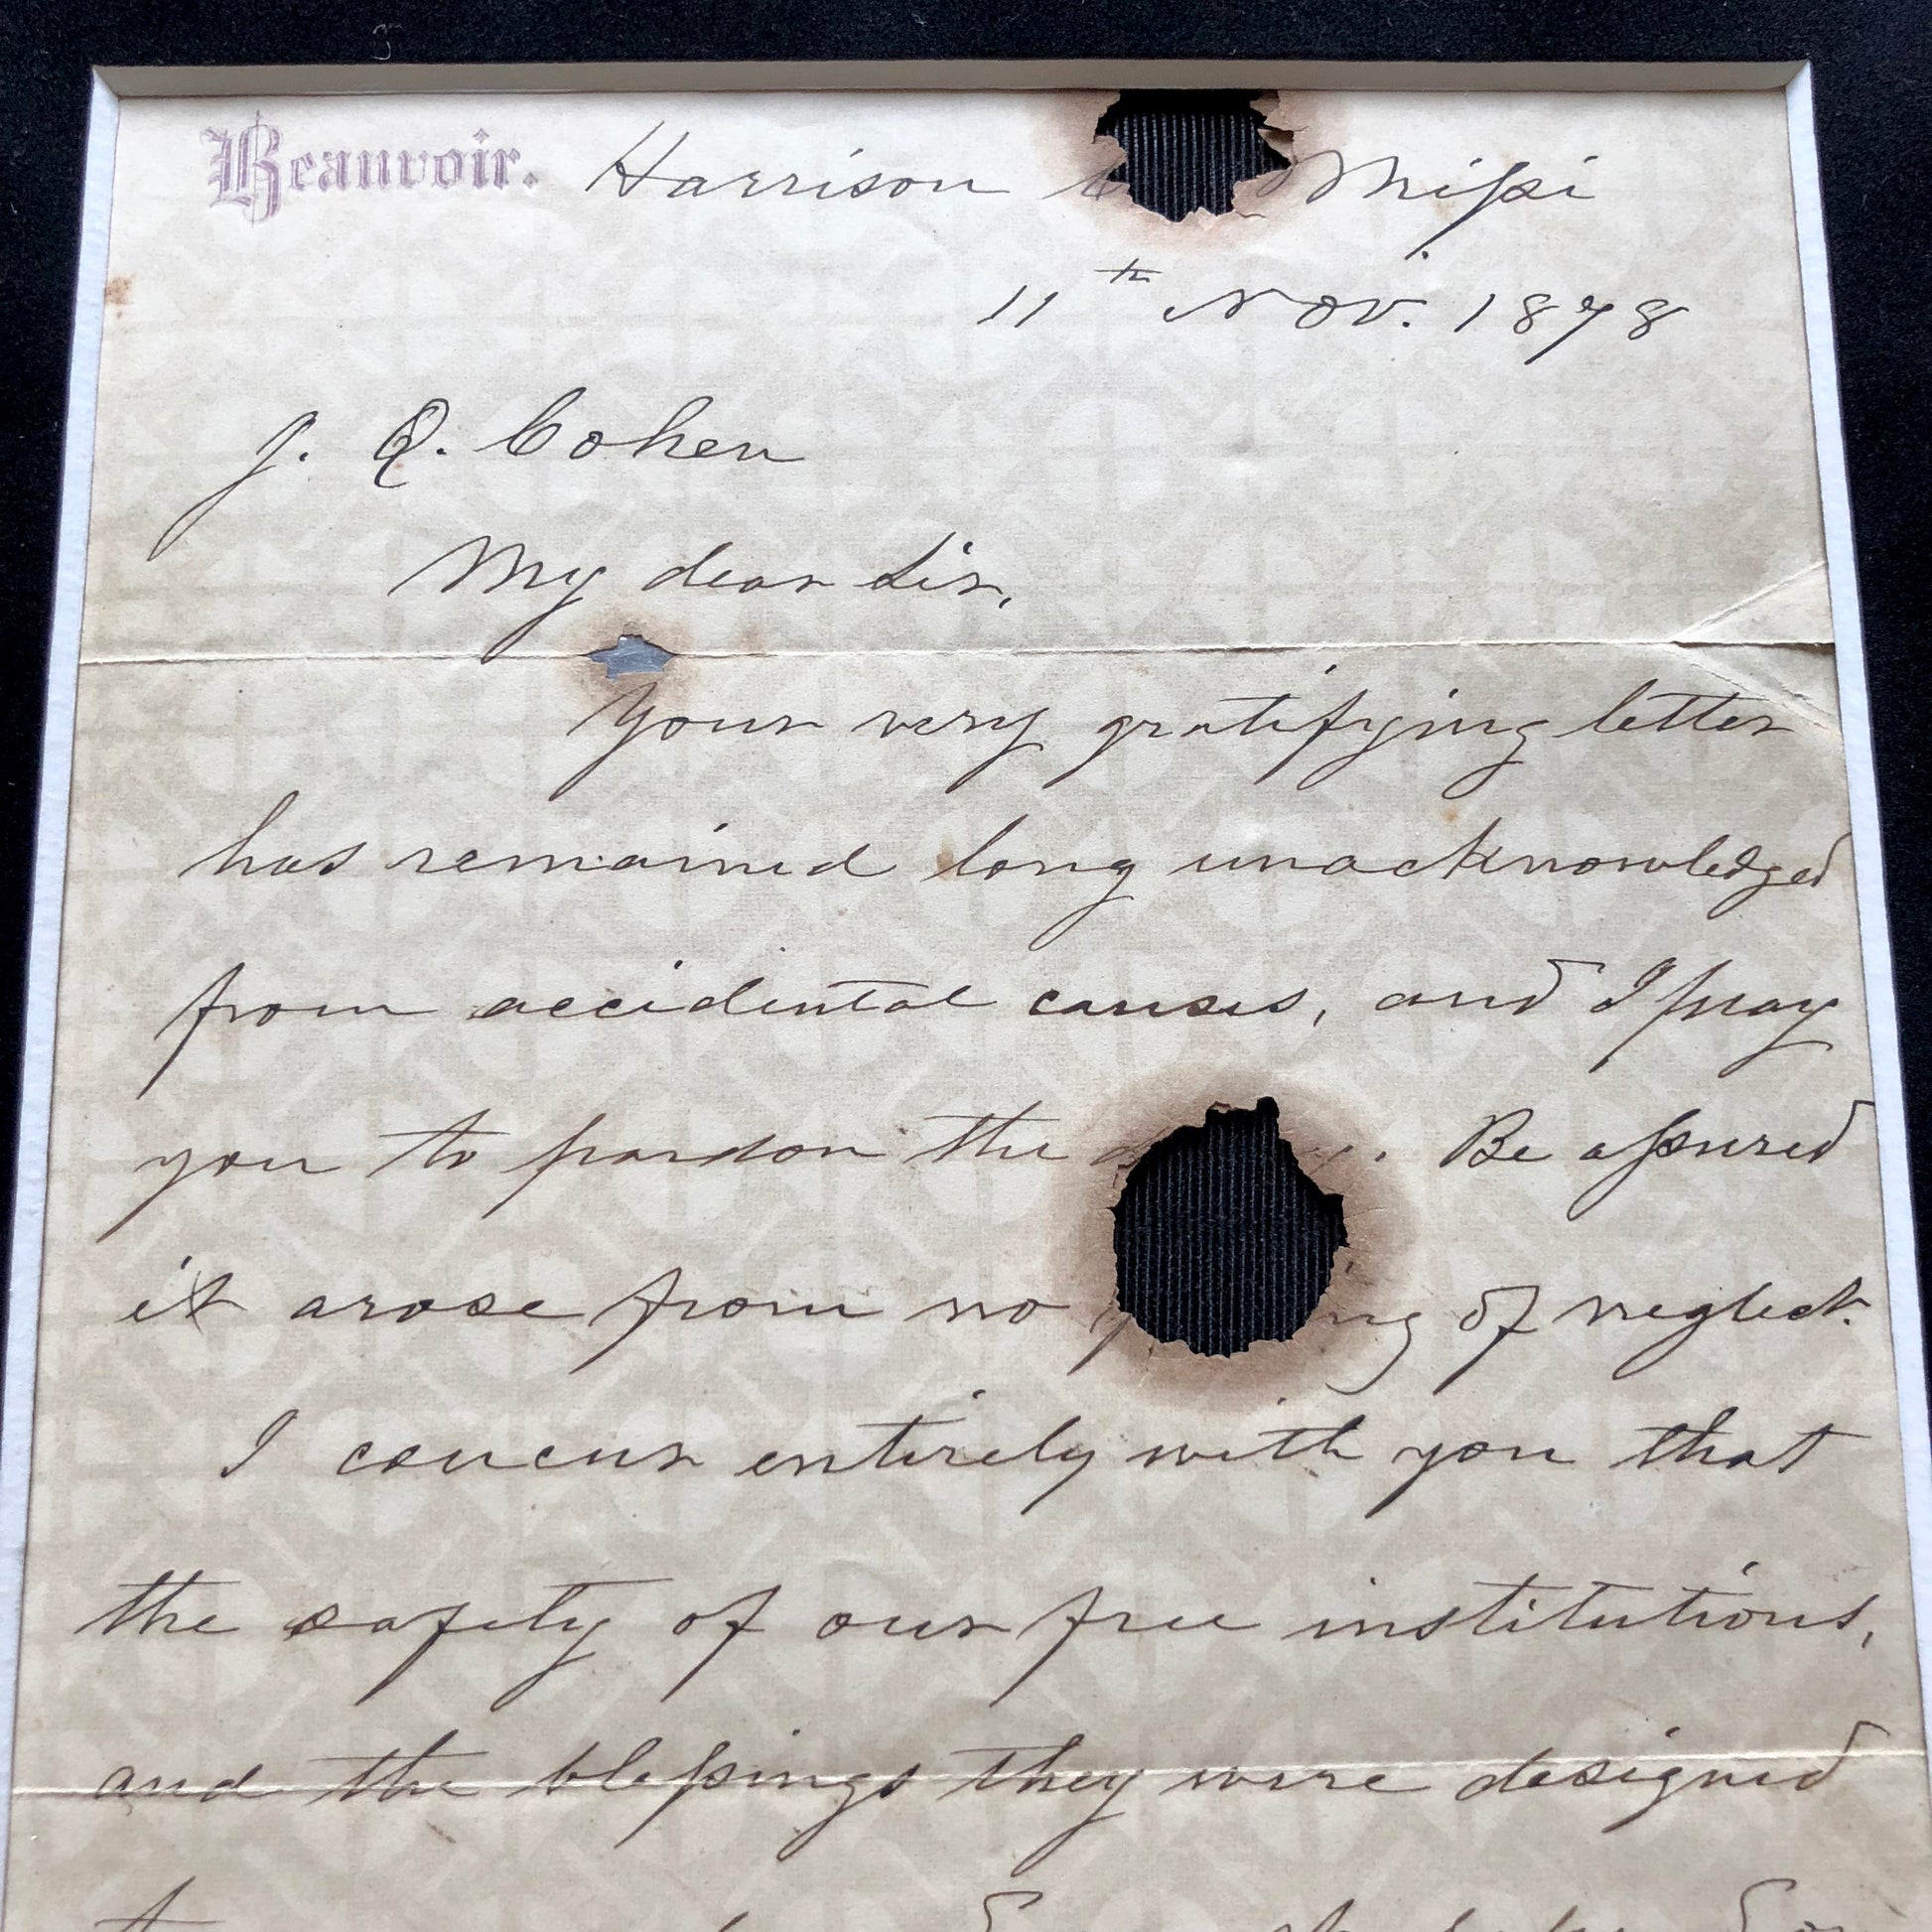 Beauvoir. Harrison Missi
11th Nov. 1878
J. Q. Cohen
My dear Sir,
Your very gratifying letter
has remained long unacknowledged
from accidental causes, and I pray
you to pardon the . Be assured
it arose from no of neglect.
I concur entirely with you that
the safety of our free institutions,
and the blessings they were designed